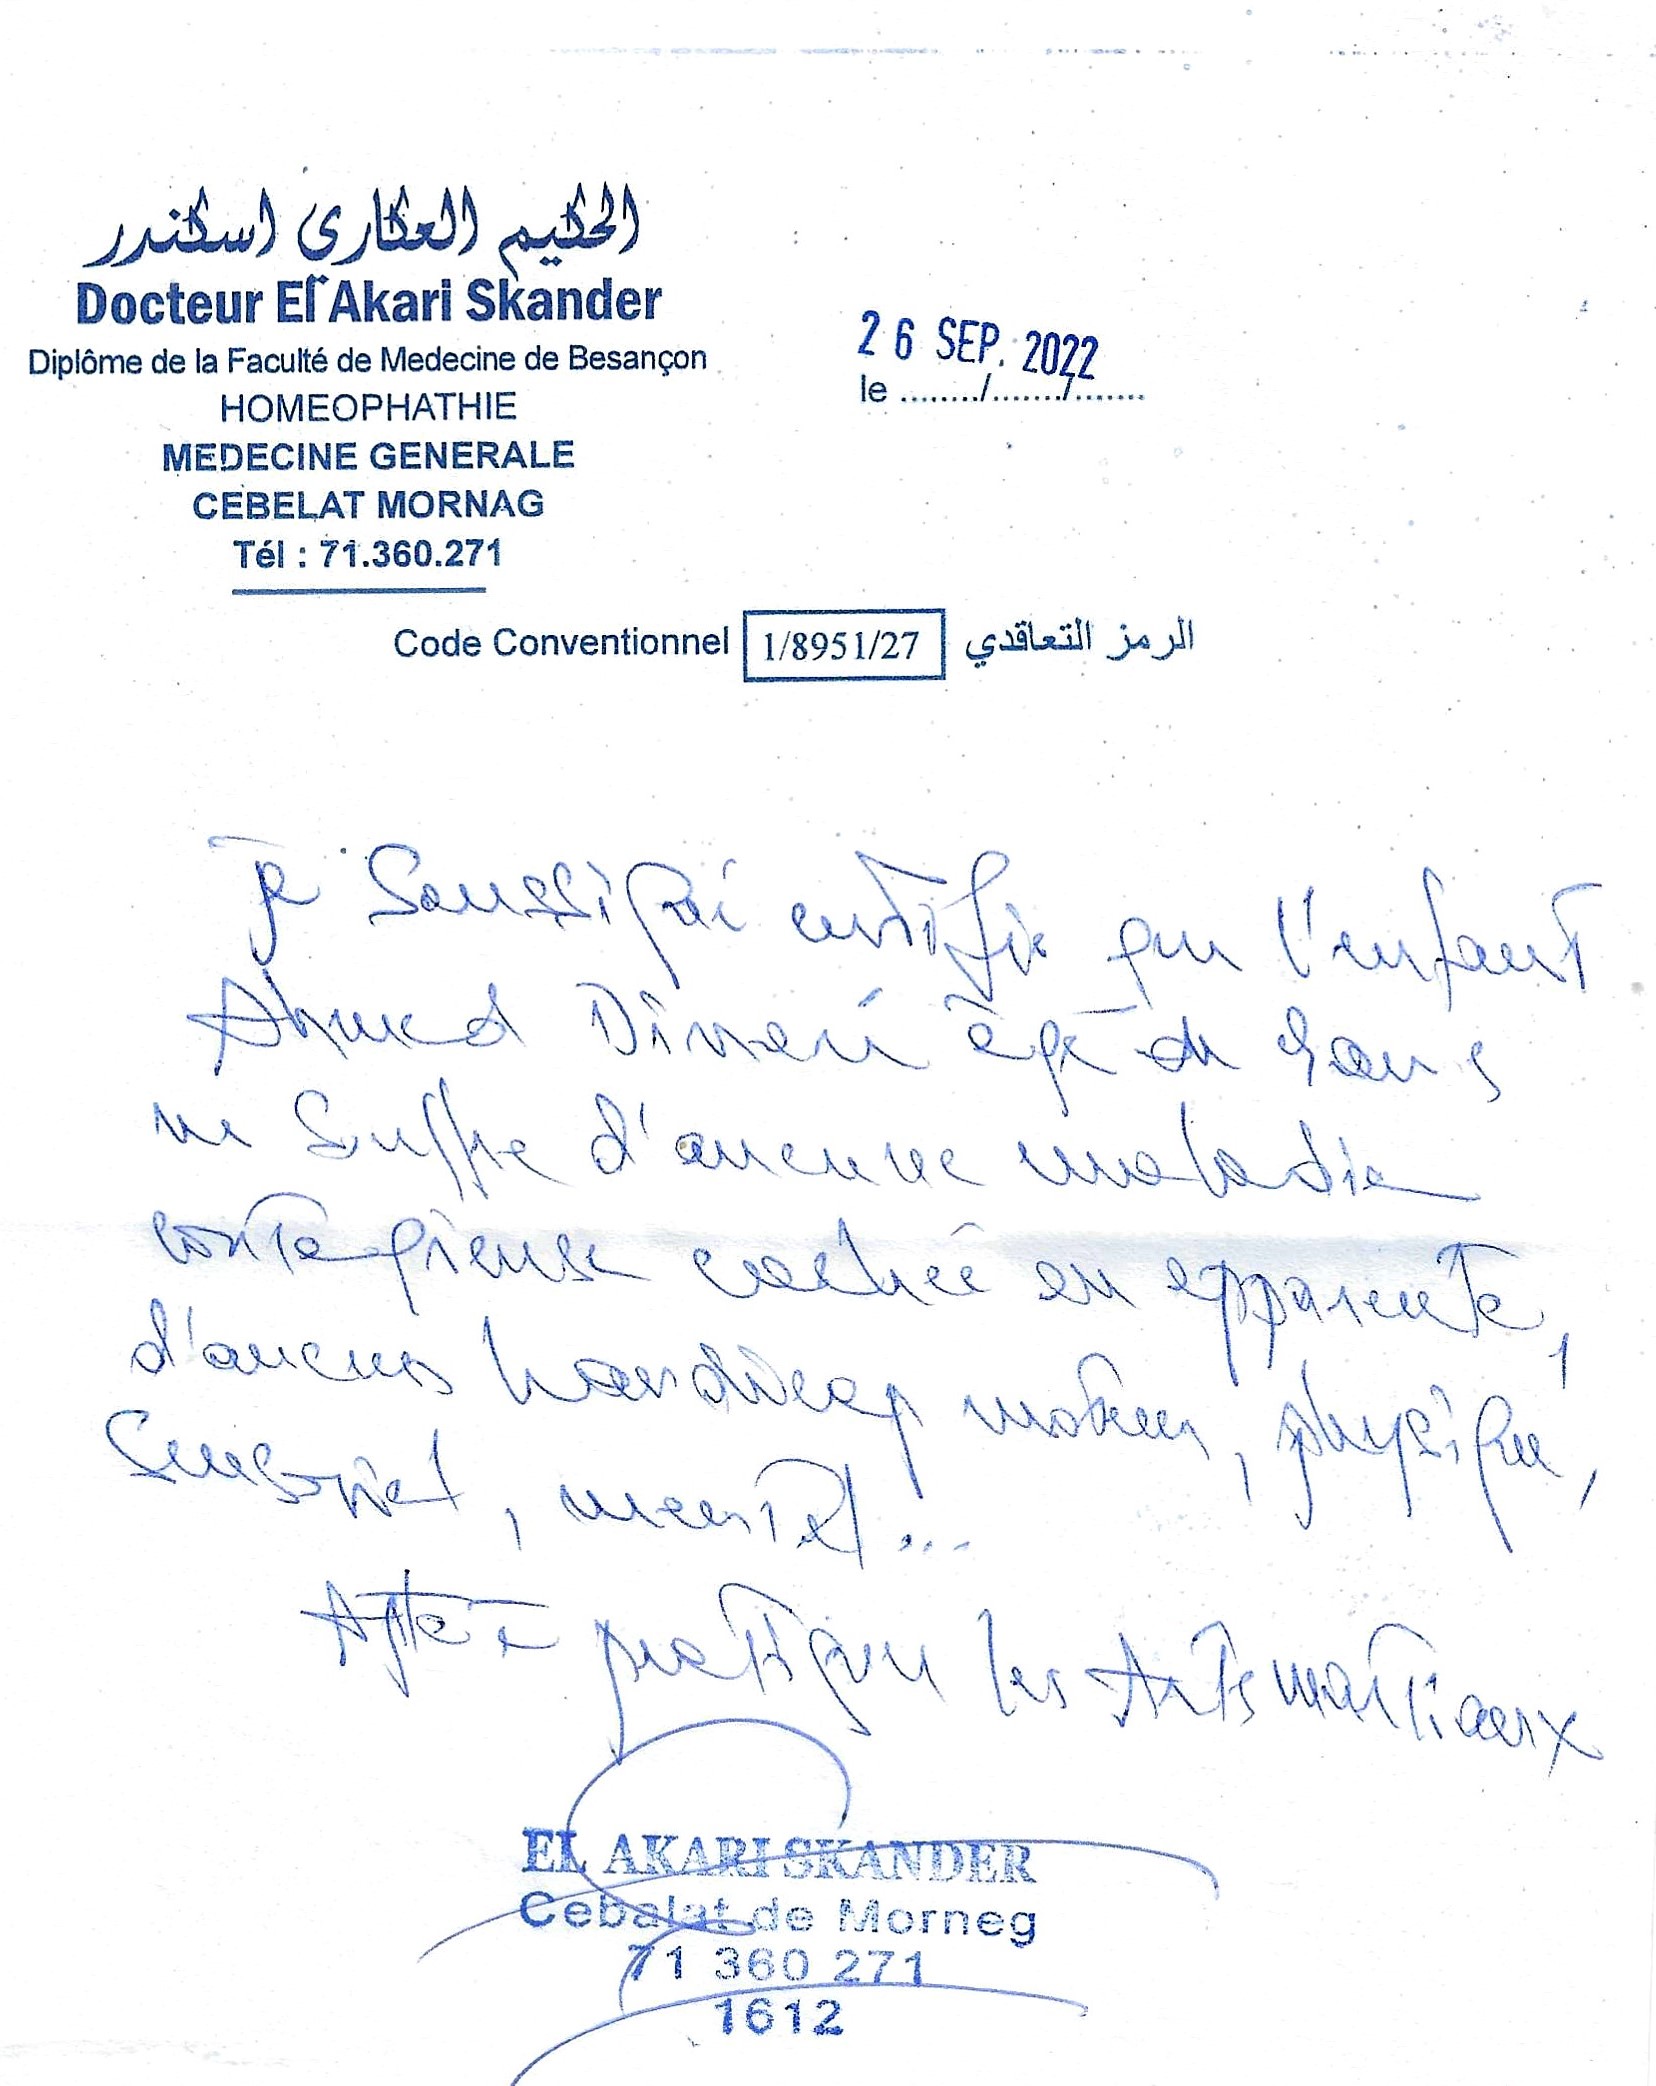 الحكيم العكاري اسكندر
Docteur El Akari Skander
Diplôme de la Faculté de Medecine de Besançon
HOMEOPHATHIE
MEDECINE GENERALE
CEBELAT MORNAG
Tél : 71.360.271
26 SEP. 2022
le ......../......./.......
Code Conventionnel 1/8951/27 الرمز التعاقدي
Je Soussigné certifie que l'enfant
Ahmed âgé de ans
ne Suffre d'aucune maladie
contagieuse cachée ou apparente,
d'aucun handicap moteur, physique,
Sensoriel, mental...
Apte à pratiquer les Arts martiaux
EL AKARI SKANDER
Cebalat de Morneg
71 360 271
1612